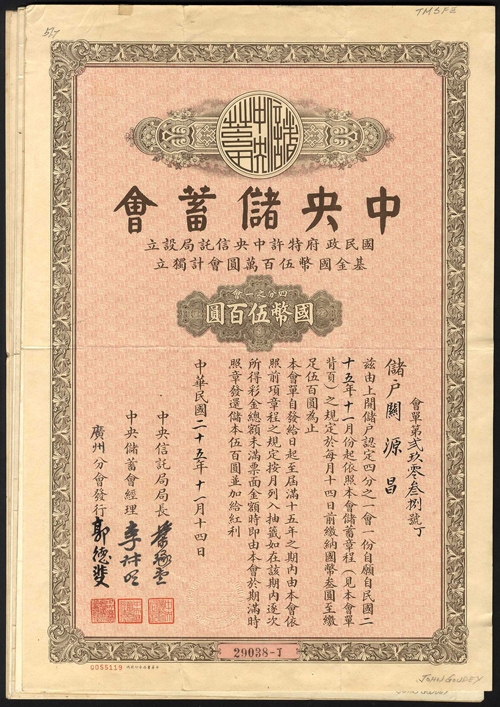 5/7
TMSFE
中央儲蓄會
國民政府特許中央信託局設立
基金國幣伍百萬圓會計獨立
四分之一會
國幣伍百圓
會單第貳玖零叁捌號丁
儲戶關源昌
茲由上開儲戶認定四分之一會一份自願自民國二
十五年十一月份起依照本會儲蓄章程(見本會單
背頁)之規定於每月十四日前繳納國幣叁圓至繳
足伍百圓為止
本會單自發給日起至屆滿十五年之期內由本會依
照前項章程之規定按月列入抽籤如在該期內逐次
所得彩金總額未滿票面金額時即由本會於期滿時
照章發還儲本伍百圓並加給紅利
中華民國二十五年十一月十四日
中央信託局局長 葉琢堂
中央儲蓄會經理 李叔明
廣州分會發行 郭德斐
29038-J
G055119